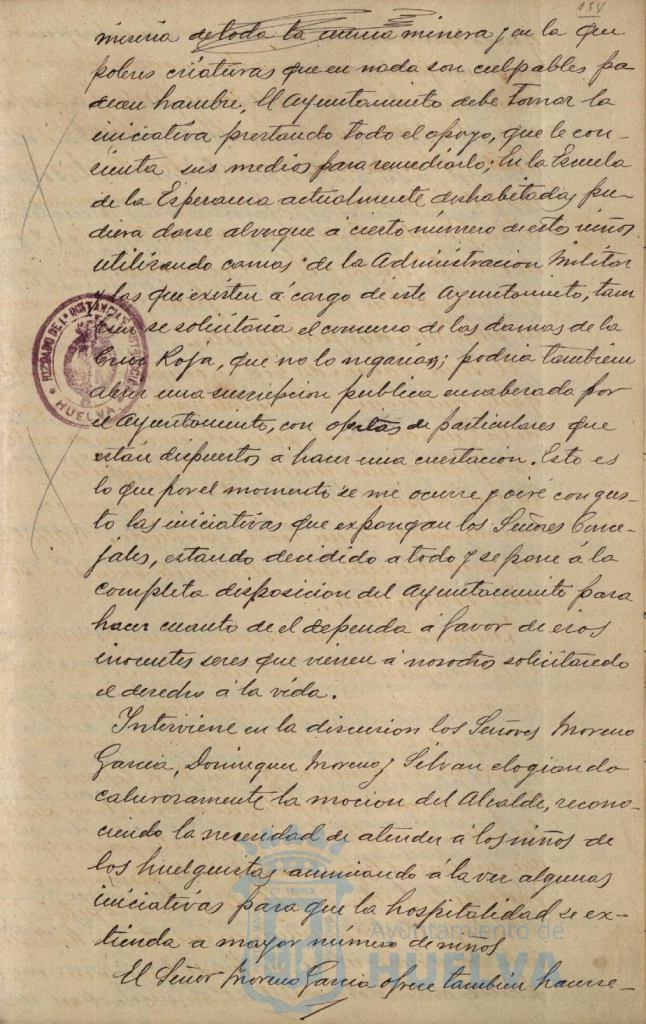 154
miseria de toda la cuenca minera y en la que
pobres criaturas que en nada son culpables pa
decen hambre, El Ayuntamiento debe tomar la
iniciativa prestando todo el apoyo, que le con-
sienta sus medios para remediarlo; En la Escuela
de la Esperanza actualmente deshabitada, pu-
diera darse alvergue á cierto número de estos niños
utilizando camas de la Administracion Militar
y las que existen á cargo de este Ayuntamiento, tam
bien se solicitaria el concurso de las damas de la
Cruz Roja, que no lo negarian; podria tambien
abrir una suscripcion publica encabezada por
el Ayuntamiento, con ofertas de particulares que
están dispuestos á hacer una cuestacion. Esto es
lo que por el momento se me ocurre y oiré con gus-
to las iniciativas que expongan los Señores Conce-
jales, estando decidido a todo y se pone á la
completa disposicion del Ayuntamiento para
hacer cuanto de el dependa á favor de esos
inocentes seres que vienen á nosotros solicitando
el derecho á la vida.
Interviene en la discusion los Señores Moreno
Garcia, Dominguez Moreno y Silvan elogiando
calurosamente la mocion del Alcalde, recono-
ciendo la necesidad de atender á los niños de
los huelguistas anunciando á la vez algunas
iniciativas para que la hospitalidad se ex-
tienda a mayor número de niños
El Señor Moreno Garcia ofrece tambien hacerse-
JUZGADO DE 1ª INSTANCIA
HUELVA
Ayuntamiento de
HUELVA